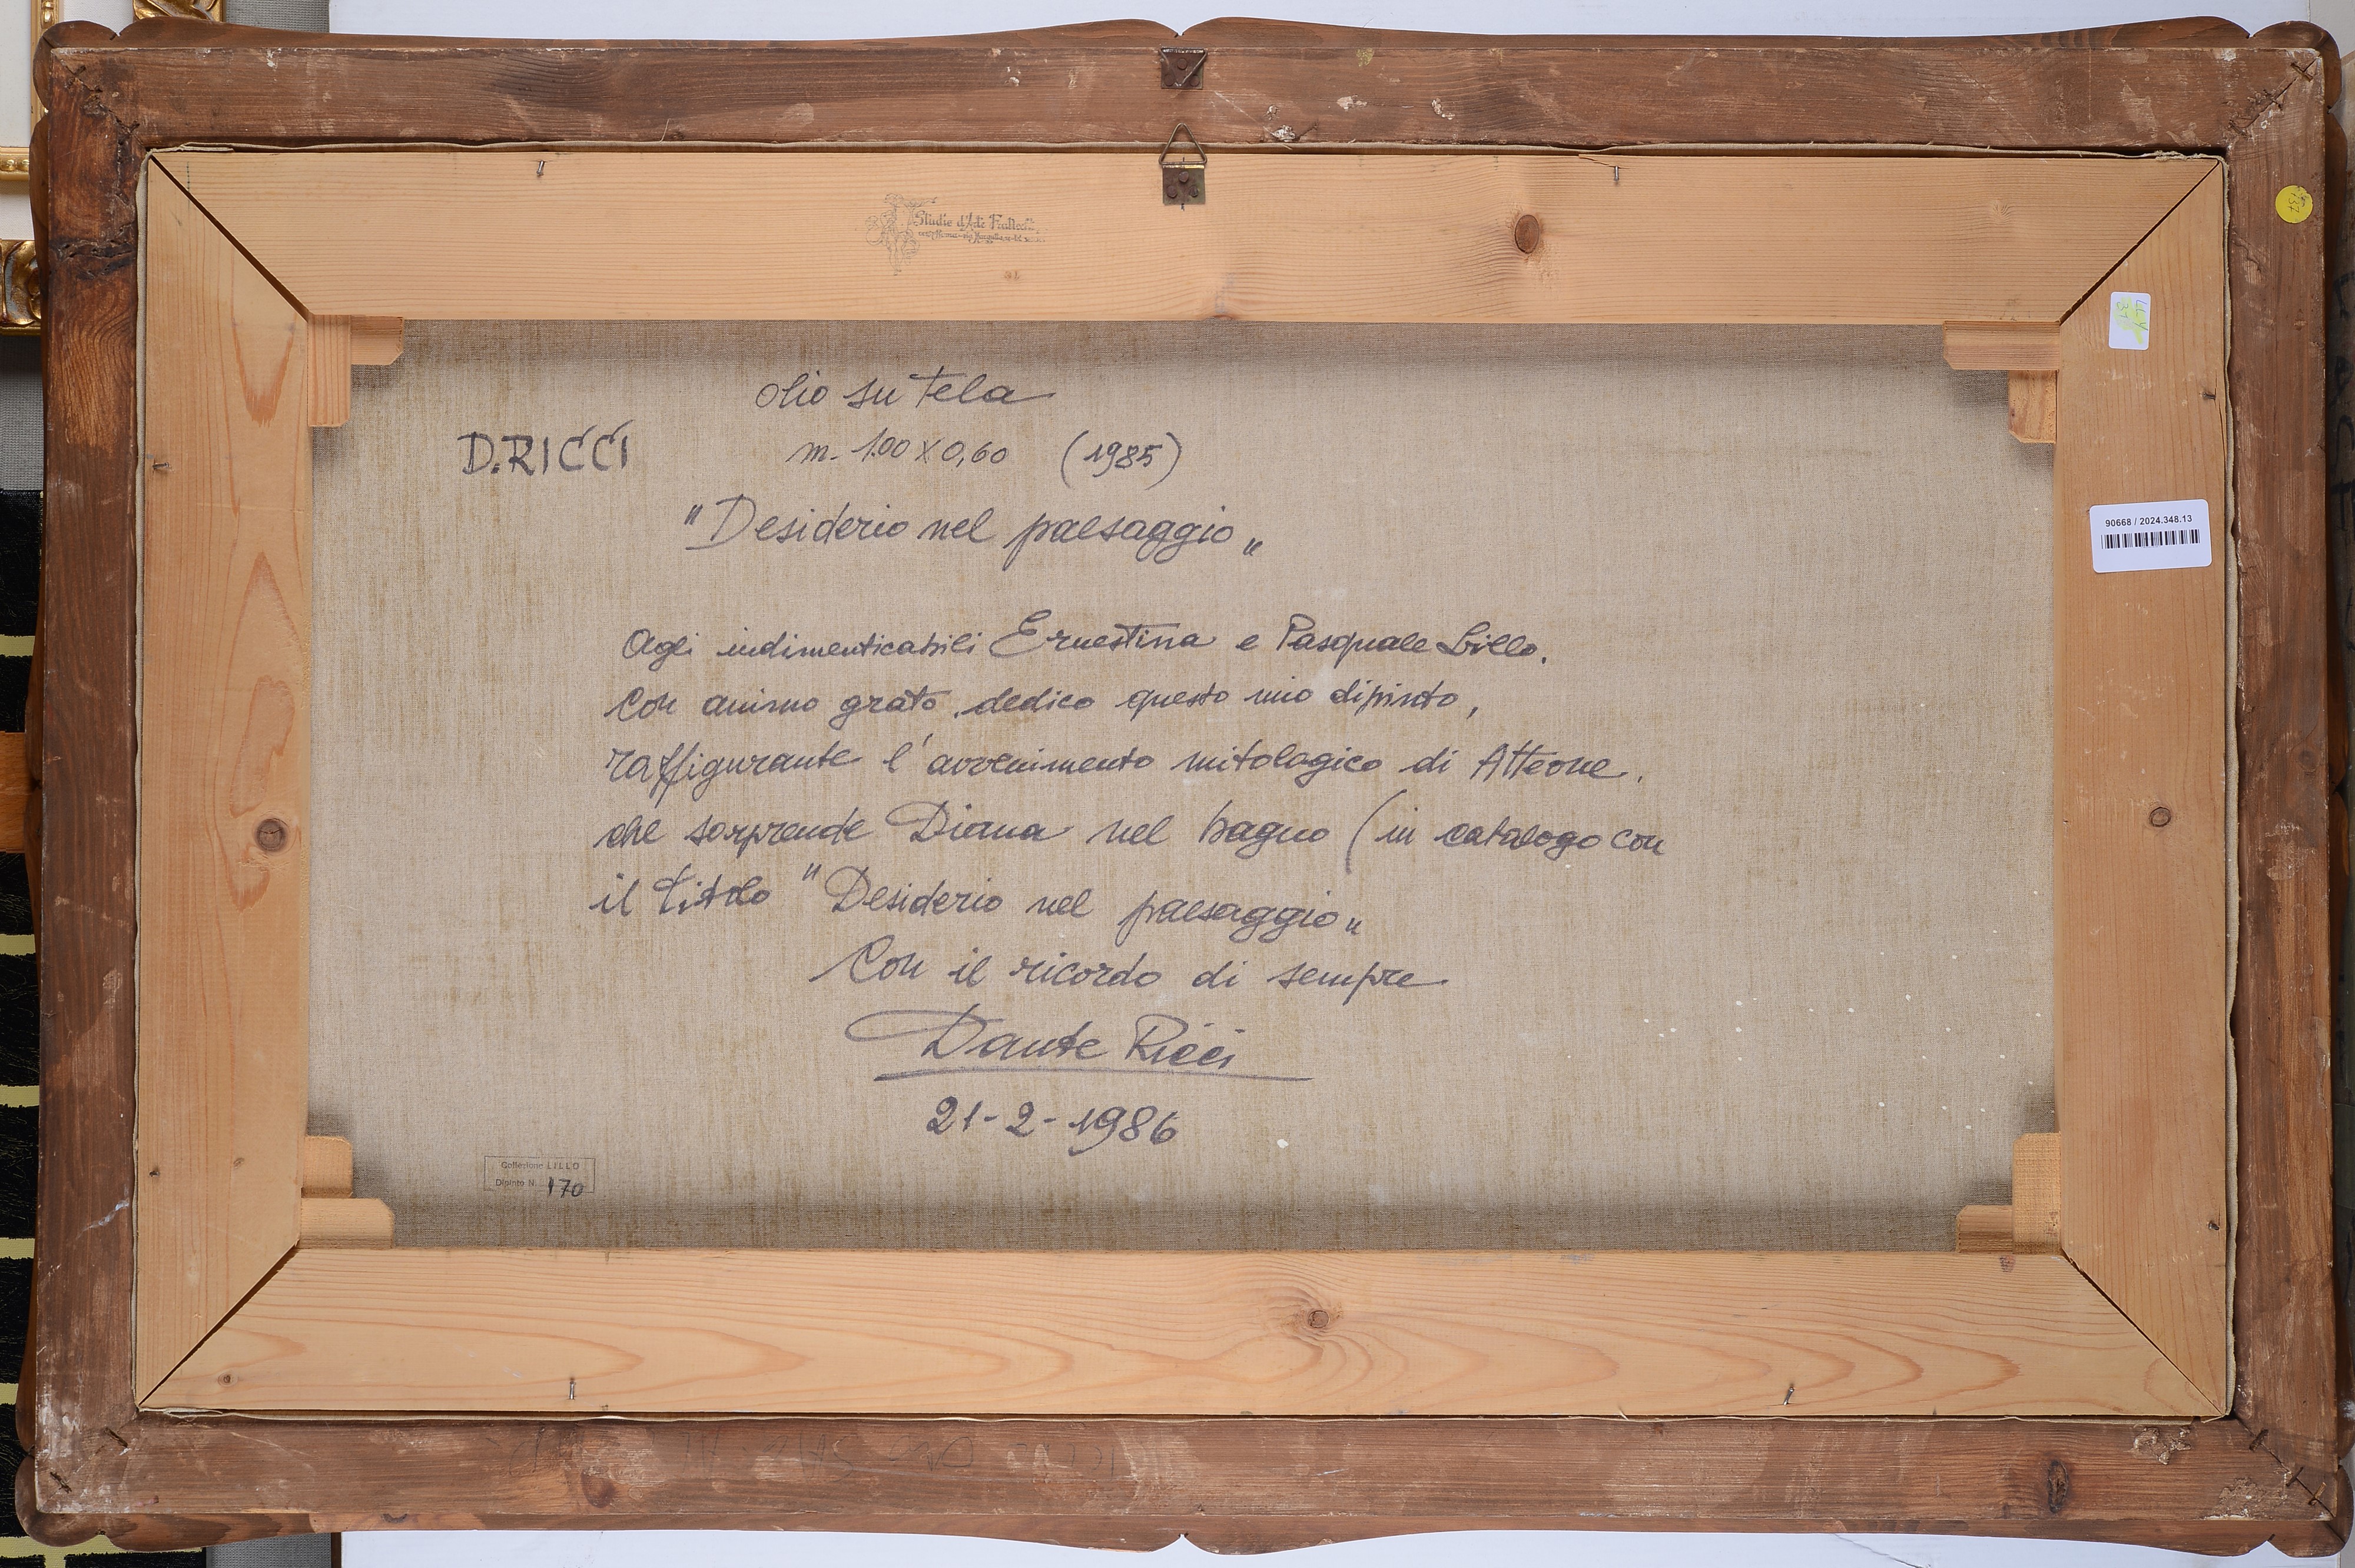 Studio d'Arte
olio su tela
D. RICCI
m. 1.00 x 0,60 (1985)
"Desiderio nel paesaggio"
Agli indimenticabili Ernestina e Pasquale Lillo.
Con animo grato, dedico questo mio dipinto,
raffigurante l'avvenimento mitologico di Atteone,
che sorprende Diana nel bagno (in catalogo con
il titolo "Desiderio nel paesaggio"
Con il ricordo di sempre
Dante Ricci
21-2-1986
Collezione LILLO
Dipinto N. 170
90668 / 2024.348.13